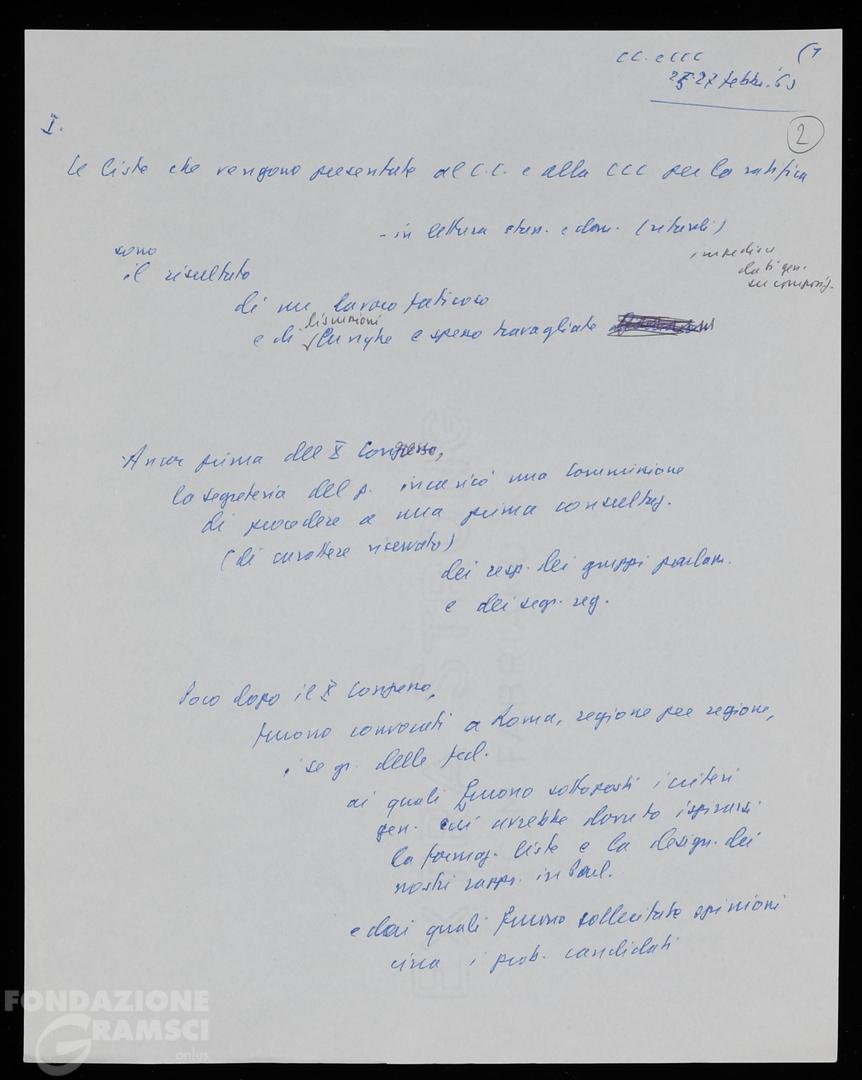 CC. e CCC
25-27 febbr. 63
(1
2
I.
Le liste che vengono presentate al C.C. e alla CCC per la ratifica
- in lettura stam. e dom. (ritirarli)
sono
il risultato
dati gen.
su composiz.
di un lavoro faticoso
discussioni
e di lunghe e spesso travagliate
Ancor prima del X Congresso,
la segreteria del p. incaricò una Commissione
di procedere a una prima consultaz.
(di carattere riservato)
dei resp. dei gruppi parlam.
e dei segr. reg.
Poco dopo il X Congresso,
furono convocati a Roma, regione per regione,
i segr. delle fed.
ai quali furono sottoposti i criteri
gen. cui avrebbe dovuto ispirarsi
la formaz. liste e la design. dei
nostri rappr. in Parl.
e dai quali furono sollecitate opinioni
circa i prob. candidati
FONDAZIONE
GRAMSCI
onlus